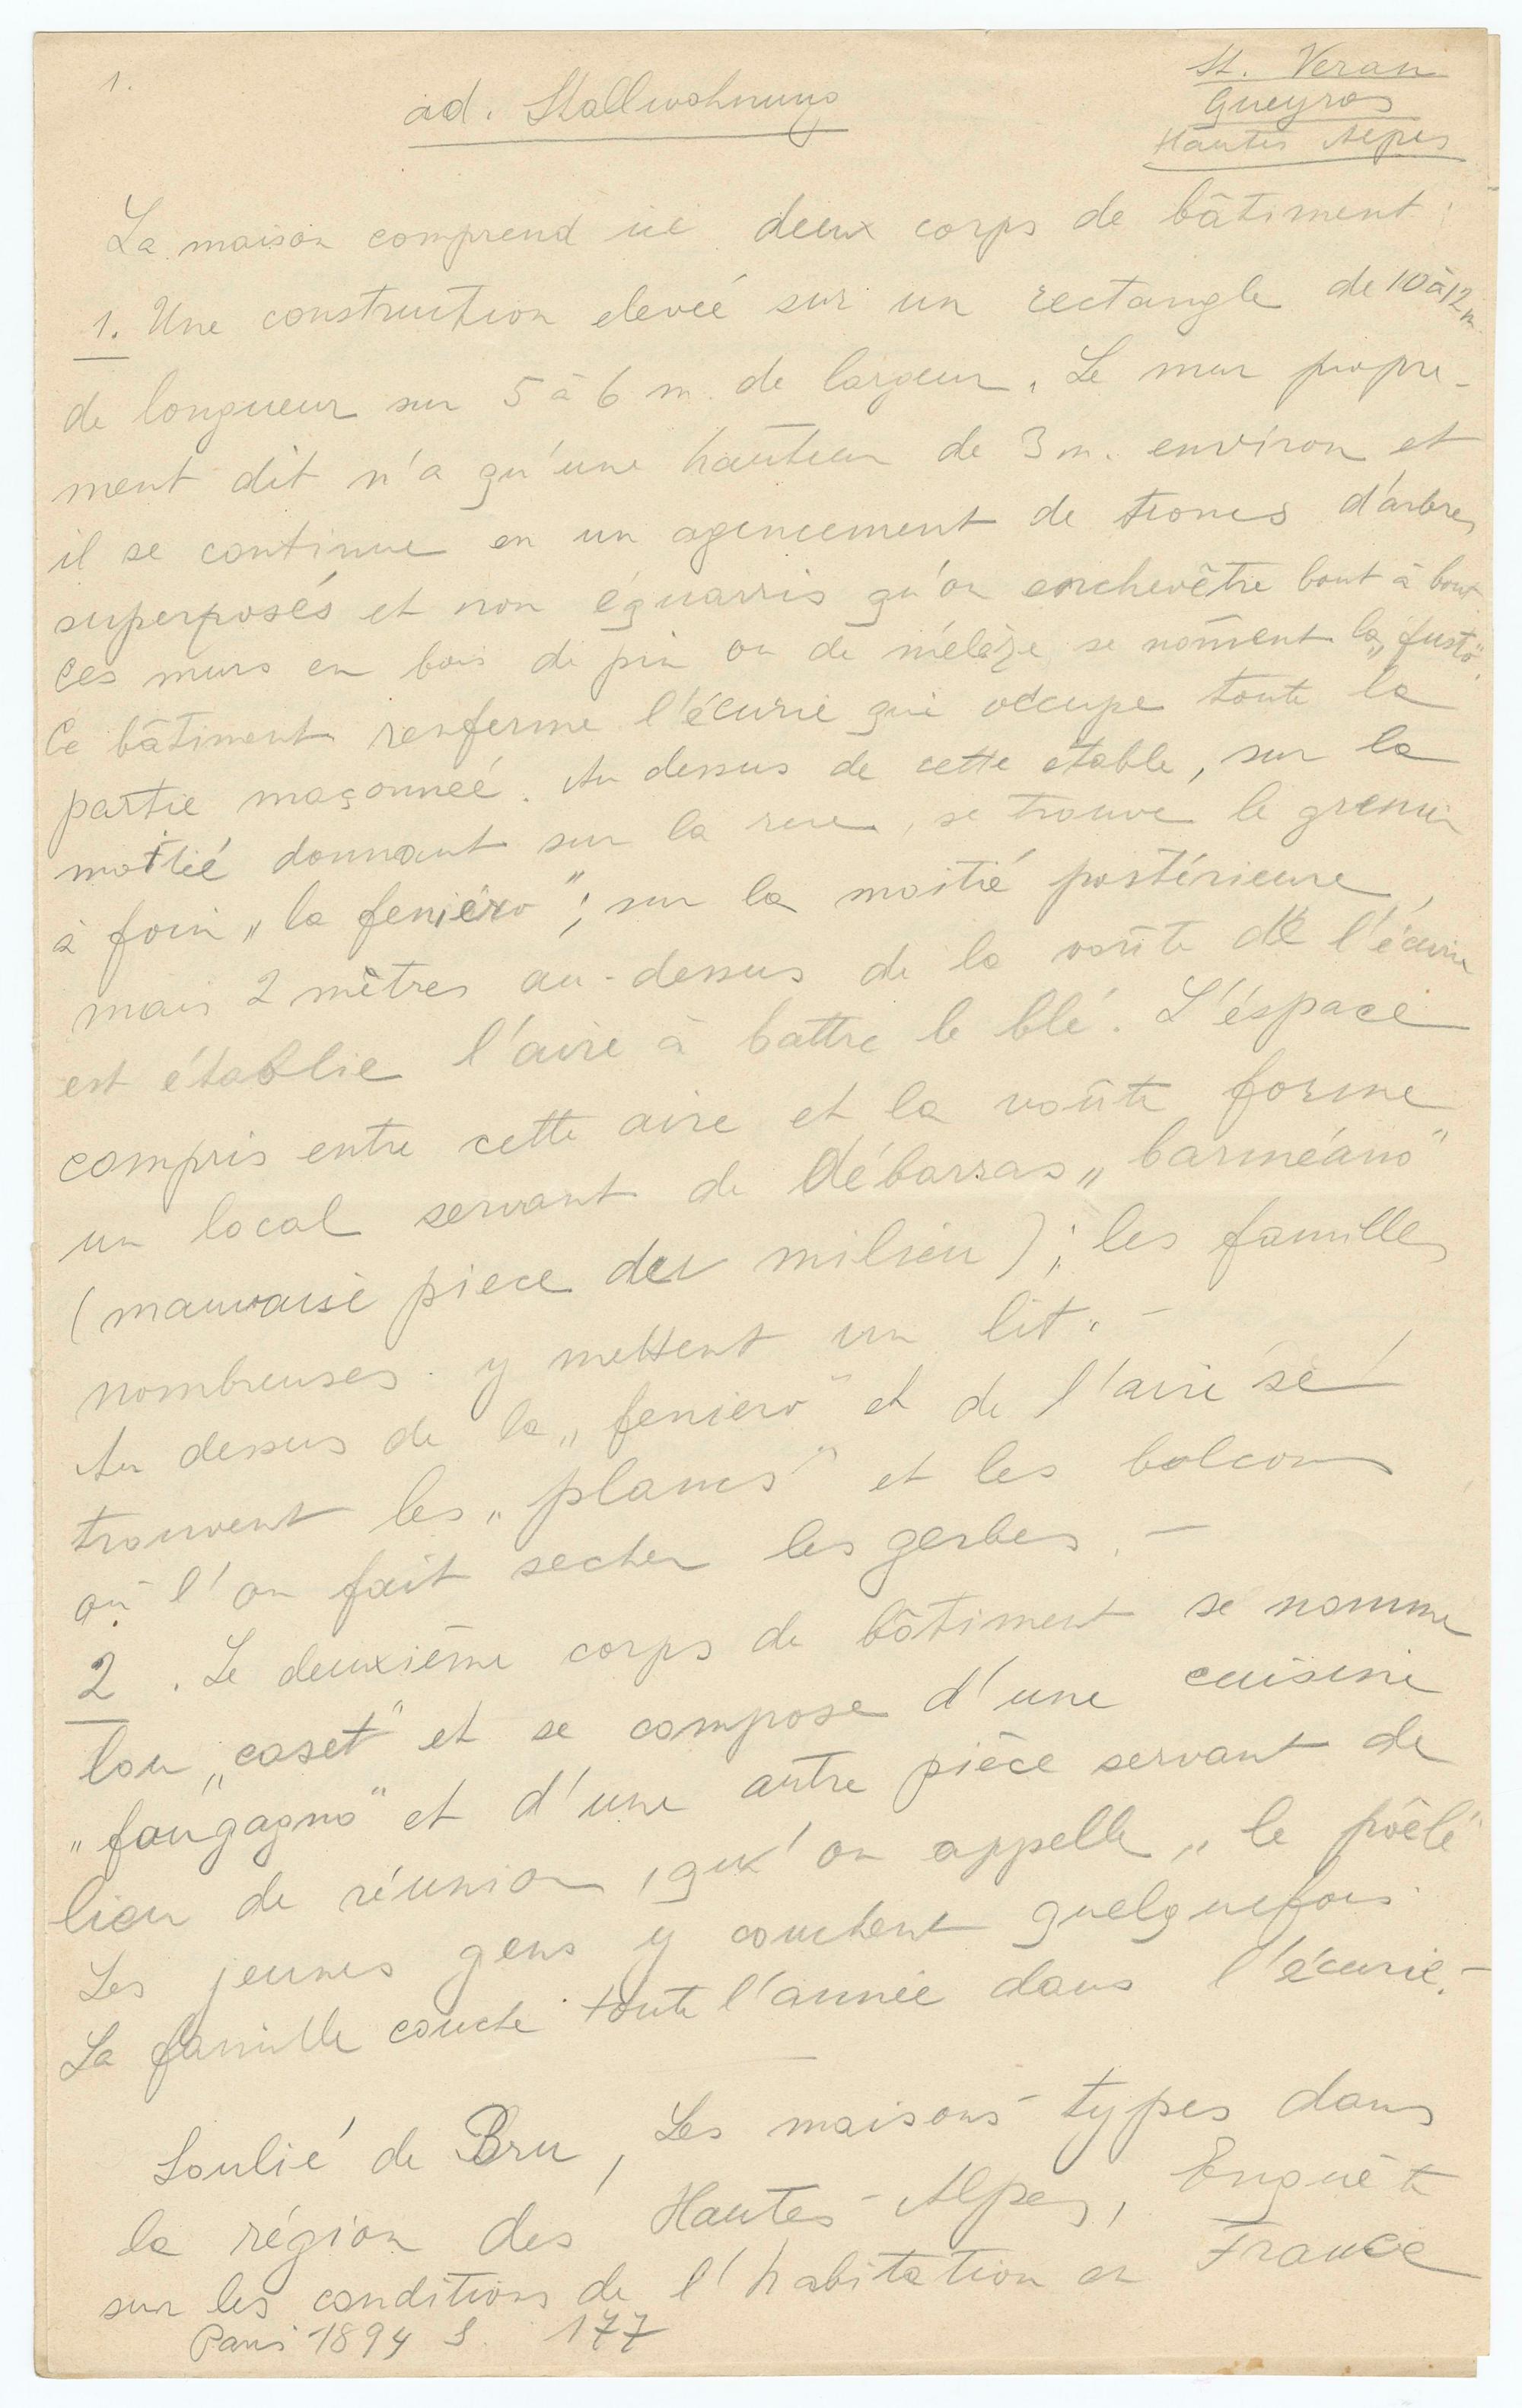 1.
ad. Stallwohnung
St. Veran
Queyras
Hautes Alpes
La maison comprend ici deux corps de bâtiment:
1. Une construction elevée sur un rectangle de 10 à 12 m.
de longueur sur 5 à 6 m. de largeur. Le mur propre-
ment dit n'a qu'une hauteur de 3 m. environ et
il se continue en un agencement de troncs d'arbres
superposés et non équarris qu'on enchevêtre bout à bout.
Ces murs en bois de pin ou de mélèze se nom̄ent la „fusto".
Ce bâtiment renferme l'écurie qui occupe toute la
partie maçonneé. Au dessus de cette etable, sur la
moitié donnant sur la rue, se trouve le grenier
à foin „la feniéro"; sur la moitié postérieure,
mais 2 mètres au-dessus de la voûte de l'écurie
est établie l'aire à battre le blé. L'éspace
compris entre cette aire et la voûte forme
un local servant de débarras „barmeáno"
(mauvaise piece du milieu); les familles
nombreuses y mettent un lit. -
Au dessus de la „feniero" et de l'aire se
trouvent les „plancs" et les balcons
où l'on fait secher les gerbes. -
2. Le deuxième corps de bâtiment se nomme
lou „caset" et se compose d'une cuisine
„fougagno" et d'une autre pièce servant de
lieu de réunion, qu'on appelle „le pöêle"
Les jeunes gens y couchent quelquefois.
La famille couche toute l'année dans l'écurie. -
Soulié de Bru, Les maisons-types dans
la région des Hautes-Alpes, Enquête
sur les conditions de l'habitation en France
Paris 1894 S. 177